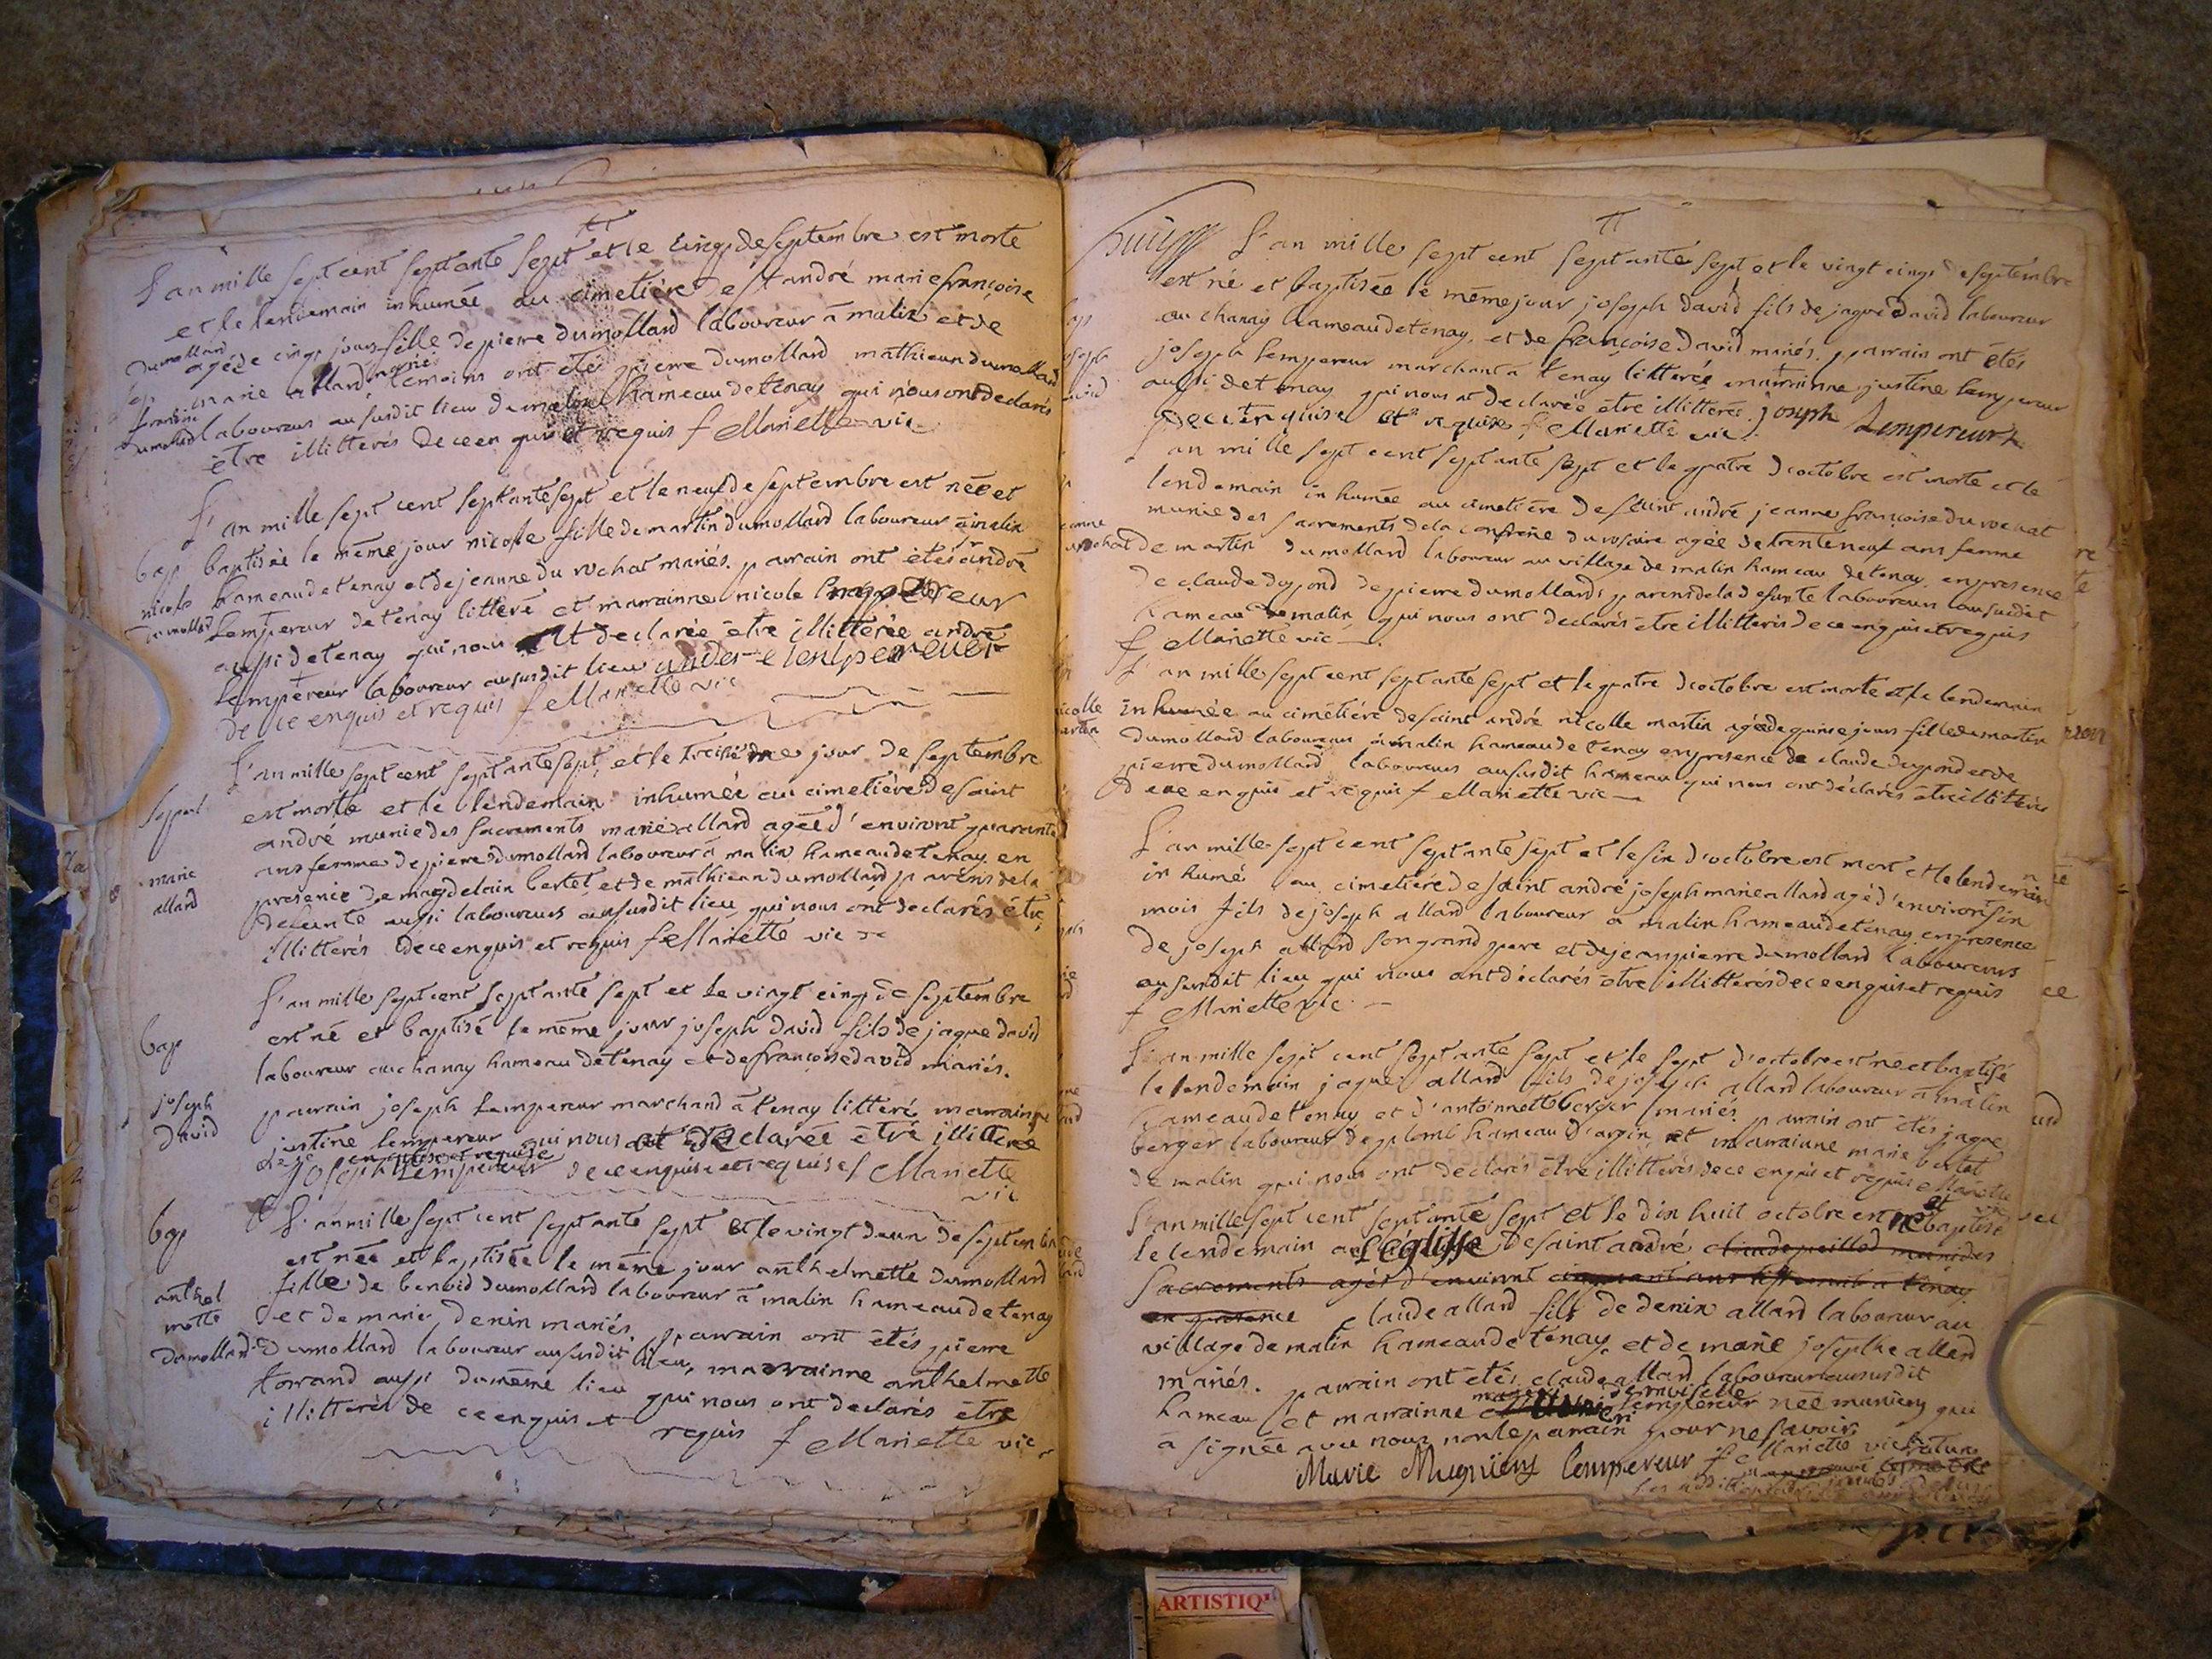 L'an mille sept cent septante sept et le cinq de septembre est morte
et le lendemain inhumée au cimetiére de st andré marie françoise
dumollard agée de cinq jours fille de pierre dumollard laboureur à malix et de
marie allard mariés temoins ont étés pierre dumollard mathieu dumollard
laboureurs au susdit lieu de malix hameau de tenay qui nous ont declarés
être illitterés de ce enquis et requis f Mariette vic
L'an mille sept cent septante sept et le neuf de septembre est née et
bap baptisée le même jour nicole fille de martin dumollard laboureur à malix
nicole hameau de tenay et de jeanne du rochat mariés. parrain ont étés sr andré
dumollard Lempereur de tenay litteré et marrainne nicole Lempereur
aussi de tenay qui nous at declarée être illitterée andré
Lempereur laboureur au susdit lieu andre lempereur
de ce enquis et requis f Mariette vic
L'an mille sept cent septante sept et le treisieme jour de septembre
est morte et le lendemain inhumée au cimetière de saint
andré munie des sacrements marie allard agée d'environt quarante
ans femme de pierre dumollard laboureur à malix hameau de tenay en
marie
allard
presence de magdelain bertet et de mathieu dumollard parens de la
defunte aussi laboureurs au susdit lieu qui nous ont declarés être
illitterés de ce enquis et requis f Mariette vic
L'an mille sept cent septante sept et le vingt cinq de septembre
bap
est né et baptisé le même jour joseph david fils de jaque david
laboureur au chanay hameau de tenay et de françoise david mariés.
joseph
david
parrain joseph Lempereur marchand à tenay litteré marrainne
justine lempereur qui nous at declarée être illitterée
de ce enquise et requise
joseph Lempereur de ce enquise et requise f Mariette
vic
bap
L'an mille sept cent septante sept et le vingt deux de septembre
est née et baptisée le même jour anthelmette dumollard
anthel
mette
dumollard
fille de benoid dumollard laboureur à malix hameau de tenay
et de marie denin mariés. parrain ont étés pierre
dumollard laboureur au susdit lieu, marrainne anthelmette
torrand aussi du même lieu qui nous ont declarés être
illitterés de ce enquis et requis f Mariette vic
L'an mille sept cent septante sept et le vingt cinq de septembre
est né et baptisée le même jour joseph david fils de jaque david laboureur
au chanay hameau de tenay. et de françoise david mariés. parrain ont étés
joseph Lempereur marchant à tenay litterée marrainne justine lempereur
aussi de tenay qui nous at declarée être illitterée joseph Lempereur
de ce enquise et requise f Mariette vic
L'an mille sept cent septante sept et le quatre d'octobre est morte et le
lendemain inhumée au cimetière de saint andré jeanne françoise du rochat
munie des sacrements de la confrerie du rosaire agée de trente neuf ans femme
de martin dumollard laboureur au village de malix hameau de tenay en presence
de claude dupond de pierre dumollard parens de la defunte laboureurs au susdit
hameau de malix qui nous ont declarés être illitterés de ce enquis et requis
f Mariette vic
L'an mille sept cent septante sept et le quatre d'octobre est morte et le lendemain
inhumée au cimetiére de saint andré nicolle martin agée de quinse jours fille de martin
dumollard laboureur à malix hameau de tenay en presence de claude dupond et de
pierre dumollard laboureurs au susdit hameau qui nous ont déclarés être illitterés
de ce enquis et requis f Mariette vic
L'an mille sept cent septante sept et le six d'octobre est mort et le lendemain
inhumé au cimetière de saint andré joseph marie allard agé d'environt six
mois fils de joseph allard laboureur à malix hameau de tenay en presence
de joseph allard son grand pere et de jean pierre dumollard laboureurs
au susdit lieu qui nous ont déclarés être illitterés de ce enquis et requis
f Mariette vic
L'an mille sept cent septante sept et le sept d'octobre est né et baptisé
le lendemain jaque allard fils de joseph allard laboureur à malix
hameau de tenay et d'antoinette berger mariés parrain ont étés jaque
berger laboureur de plomb hameau d'argix et marrainne marie bertet
de malix qui nous ont declarés être illitterés de ce enquis et requis f Mariette
vic
L'an mille sept cent septante sept et le dix huit octobre est né et baptisé
le lendemain a L'église de saint andré
sacrements agés d'environt
en presence claude allard fils de denix allard laboureur au
village de malix hameau de tenay et de marie josephe allard
mariés. parrain ont étés claude allard laboureur au susdit
hameau et marrainne demoiselle lempereur née muniery qui
à signée avec nous non le parrain pour ne savoir
Marie Mugniery lempereur f Mariette vic
ARTISTIQ